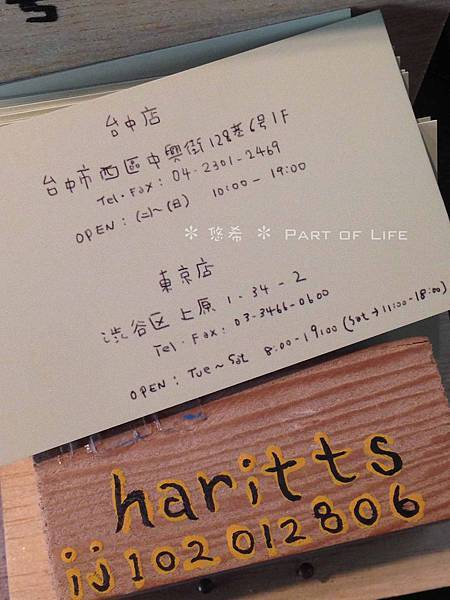 台中店
台中市西區中興街128巷6号1F
Tel・Fax: 04-2301-2469
OPEN: (二)~(日) 10:00-19:00
* 悠希 * PART OF LIFE
東京店
渋谷区上原 1-34-2
Tel・Fax: 03-3466-0600
OPEN: Tue~Sat 8:00-19:00 (Sat→11:00-18:00)
haritts
ij102012806